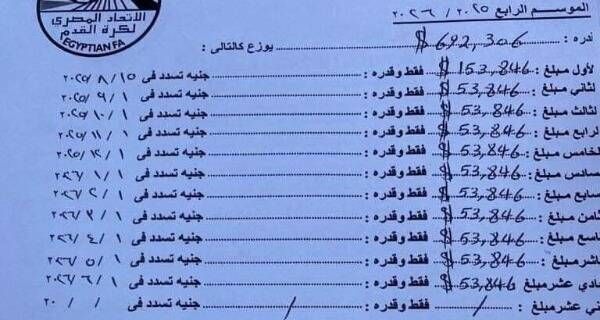 الاتحاد المصري
لكرة القدم
EGYPTIAN FA
الموسم الرابع ٢٠٢٥ / ٢٠٢٦
قدره : $ 692,306 يوزع كالتالى :
لأول مبلغ : $ 153,846 فقط وقدره : جنيه تسدد فى ١٥ / ٨ / ٢٠٢٥
لثاني مبلغ : $ 53,846 فقط وقدره : جنيه تسدد فى ١ / ٩ / ٢٠٢٥
لثالث مبلغ : $ 53,846 فقط وقدره : جنيه تسدد فى ١ / ١٠ / ٢٠٢٥
لرابع مبلغ : $ 53,846 فقط وقدره : جنيه تسدد فى ١ / ١١ / ٢٠٢٥
لخامس مبلغ : $ 53,846 فقط وقدره : جنيه تسدد فى ١ / ١٢ / ٢٠٢٥
سادس مبلغ : $ 53,846 فقط وقدره : جنيه تسدد فى ١ / ١ / ٢٠٢٦
سابع مبلغ : $ 53,846 فقط وقدره : جنيه تسدد فى ١ / ٢ / ٢٠٢٦
ثامن مبلغ : $ 53,846 فقط وقدره : جنيه تسدد فى ١ / ٣ / ٢٠٢٦
تاسع مبلغ : $ 53,846 فقط وقدره : جنيه تسدد فى ١ / ٤ / ٢٠٢٦
عاشر مبلغ : $ 53,846 فقط وقدره : جنيه تسدد فى ١ / ٥ / ٢٠٢٦
ادي عشر مبلغ : $ 53,846 فقط وقدره : جنيه تسدد فى ١ / ٦ / ٢٠٢٦
ني عشر مبلغ : / فقط وقدره : / جنيه تسدد فى / / ٢٠